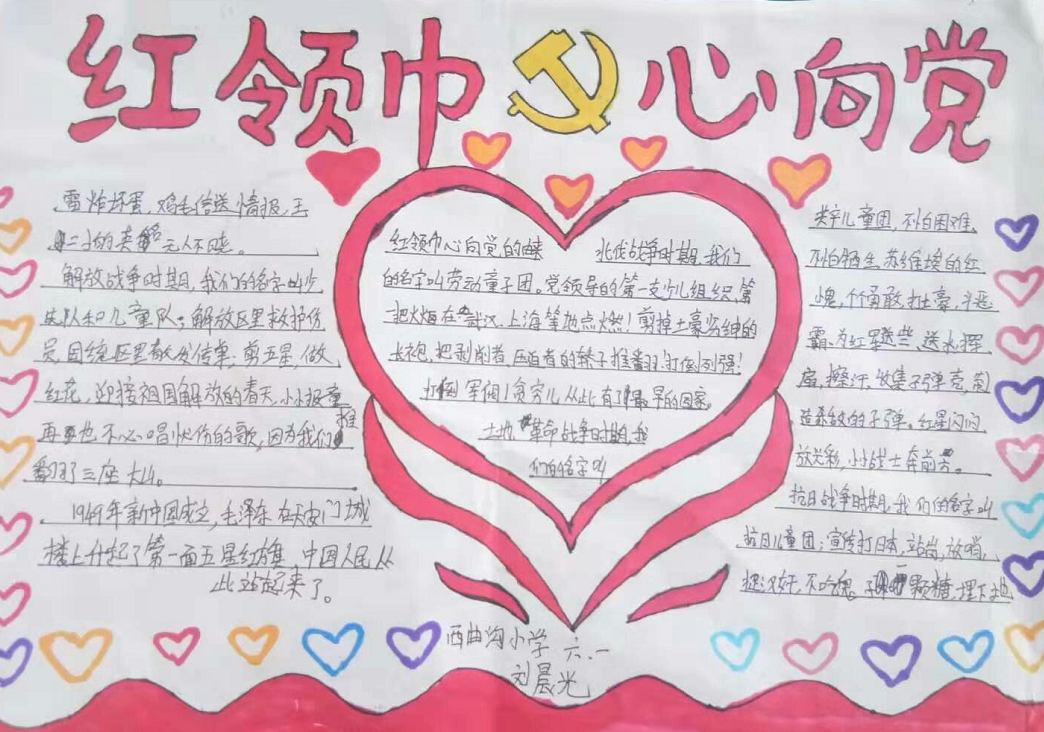 红领巾心向党
红领巾心向党的由来 北伐战争时期,我们
的名字叫劳动童子团。党领导的第一支少儿组织,第
把火炬在武汉、上海等地点燃!剪掉土豪劣绅的
长袍,把剥削者、压迫者的轿子推翻!打倒列强!
打倒军阀!贫穷儿从此有了最早的国家。
土地革命战争时期,我
们的名字叫
共产儿童团,不怕困难,
不怕牺牲,苏维埃的红
小鬼,个个勇敢,扯豪,斗恶
霸,为红军送茶、送水,挥
扇,擦汗,收集子弹壳,制
造杀敌的子弹。红星闪闪
放光彩,小小战士奔前方。
抗日战争时期,我们的名字叫
抗日儿童团:宣传打日本,站岗、放哨、
捉汉奸,不吃鬼子一颗糖,埋下地
雷炸坏蛋,鸡毛信送情报,王
二小的英名无人不晓。
解放战争时期,我们的名字叫少
先队和儿童队:解放区里救护伤
员,国统区里散发传单;剪五星,做
红花,迎接祖国解放的春天,小小报童
再也不必唱忧伤的歌,因为我们推
翻了三座大山。
1949年新中国成立,毛泽东在天安门城
楼上升起了第一面五星红旗,中国人民从
此站起来了。
西曲沟小学 六.一
刘晨光